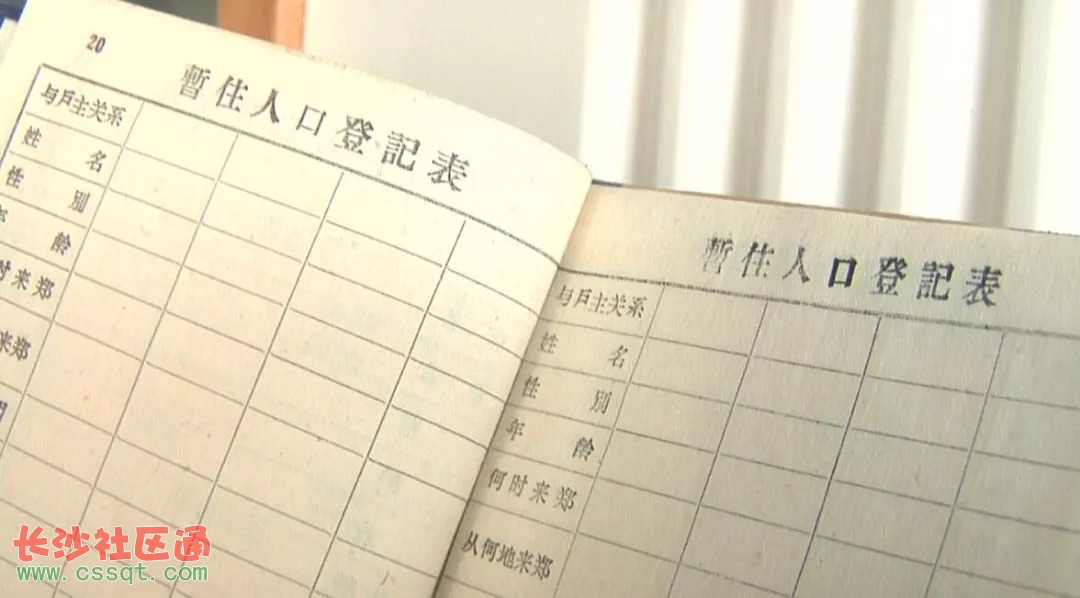 20
暫住人口登記表
与戶主关系
姓名
性別
年齡
时来郑
来郑
暫住人口登記表
与戶主关系
姓名
性別
年齡
何时来郑
从何地来郑
长沙社区通
www.cssqt.com